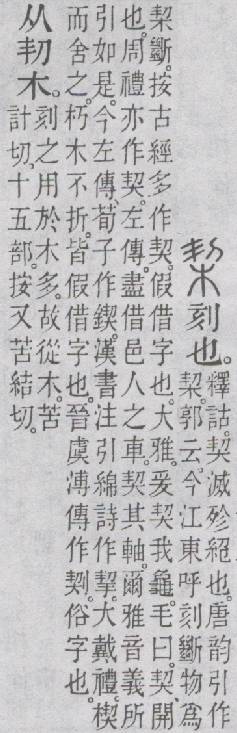 栔刻也。
釋詁。契滅殄絕也。唐韵引作
栔。郭云。今江東呼刻斷物爲
栔斷。按古經多作契。假借字也。大雅。爰契我龜。毛曰。契、開
也。周禮亦作契。左傳。盡借邑人之車。契其軸。爾雅音義所
引如是。今左傳、荀子作鍥。漢書注引綿詩作挈。大戴禮。楔
而舍之。朽木不折。皆假借字也。晉虞溥傳作。俗字也。
从㓞木。
刻之用於木多。故從木。苦
計切。十五部。按又苦結切。